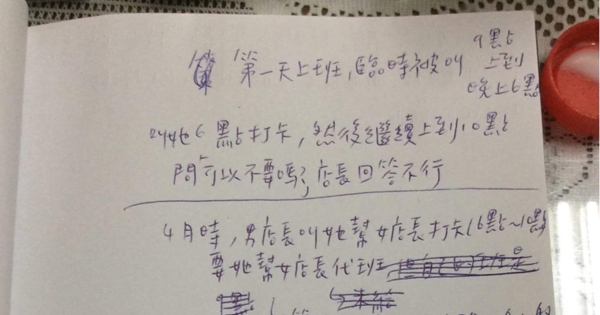 第一天上班,臨時被叫 9點
上到
晚上6點
叫她6點打卡,然後繼續上到10點
問可以不要嗎?,店長回答不行
4月時,男店長叫她幫女店長打卡(6點~10點
要她幫女店長代班,